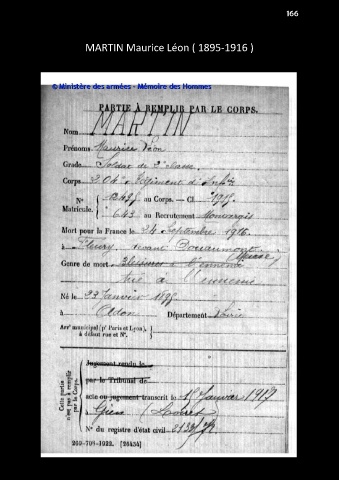 166
MARTIN Maurice Léon ( 1895-1916 )
© Ministère des armées - Mémoire des Hommes
PARTIE À REMPLIR PAR LE CORPS.
Nom MARTIN
Prénoms Maurice Léon
Grade Soldat de 2e classe
Corps 204e Régiment d'Inf
N° au Corps. — Cl 1915
Matricule. 643 au Recrutement Montargis
Mort pour la France le 24 Septembre 1916
à Fleury devant Douaumont Meuse
Genre de mort Blessures à l'ennemi
tué à l'ennemi
Né le 23 Janvier 1895
à Département Loiret
Arr' municipal (p' Paris et Lyon),
à défaut rue et N°.
Cette partie n'est pas à remplir par le Corps.
Jugement rendu le
par le Tribunal de
acte ou jugement transcrit le 18 Janvier 1917
à Gien (Loiret)
N° du registre d'état civil
269-708-1922. [26434]